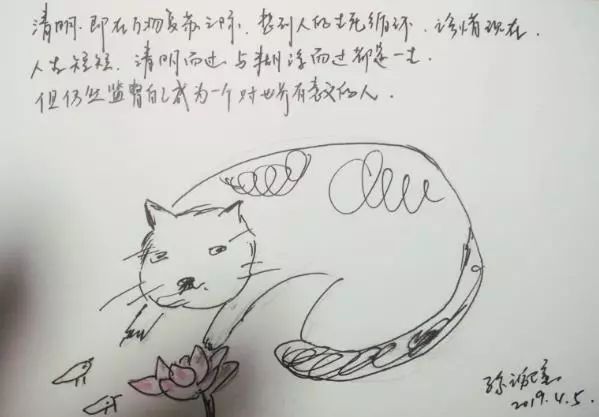 清明. 即在万物复苏之际, 想到人的生死循环, 珍惜现在.
人生短短, 清明而过 与 糊涂而过 都是一生.
但仍然 自己成为一个对世界有意义的人.
2019.4.5.